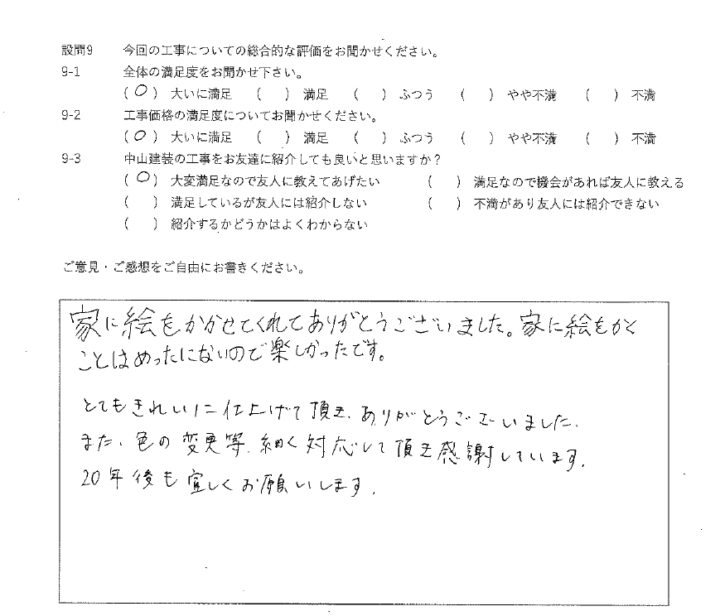 設問9 今回の工事についての総合的な評価をお聞かせください。
9-1 全体の満足度をお聞かせ下さい。
(○) 大いに満足 ( ) 満足 ( ) ふつう ( ) やや不満 ( ) 不満
9-2 工事価格の満足度についてお聞かせください。
(○) 大いに満足 ( ) 満足 ( ) ふつう ( ) やや不満 ( ) 不満
9-3 中山建装の工事をお友達に紹介しても良いと思いますか？
(○) 大変満足なので友人に教えてあげたい ( ) 満足なので機会があれば友人に教える
( ) 満足しているが友人には紹介しない ( ) 不満があり友人には紹介できない
( ) 紹介するかどうかはよくわからない
ご意見・ご感想をご自由にお書きください。
家に絵をかかせてくれてありがとうございました。家に絵をかく
ことはめったにないので楽しかったです。
とてもきれいに仕上げて頂き、ありがとうございました。
また、色の変更等、細く対応して頂き感謝しています。
20年後も宜しくお願いします。